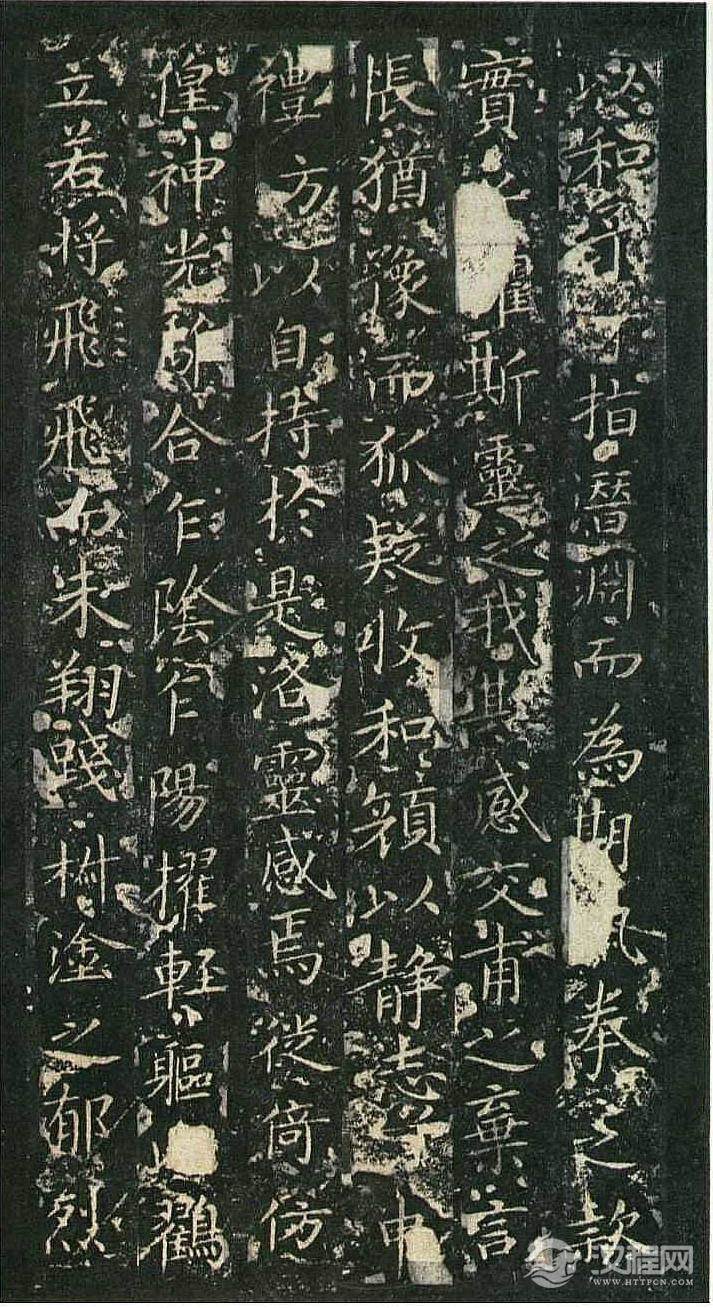 以和予兮指潛淵而為期拳之款
實懼斯靈之我欺感交甫之棄言
悵猶豫而狐疑收和顏以靜志兮申
禮方以自持於是洛靈感焉徙倚仿
偟神光合乍陰乍陽擢輕軀以鶴
立若將飛飛而未翔踐椒塗之郁烈
汉程网
WWW.HTTPCN.COM